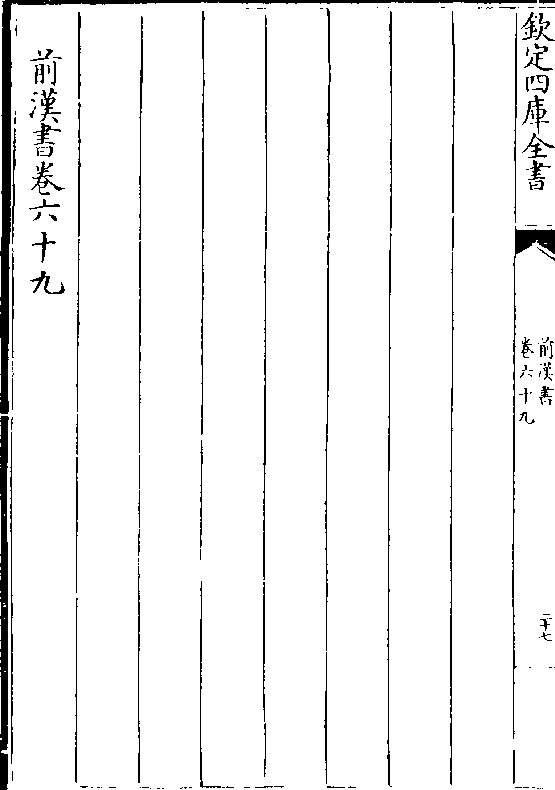 欽定四庫全書
前漢書
卷六十九
二十七
前漢書卷六十九